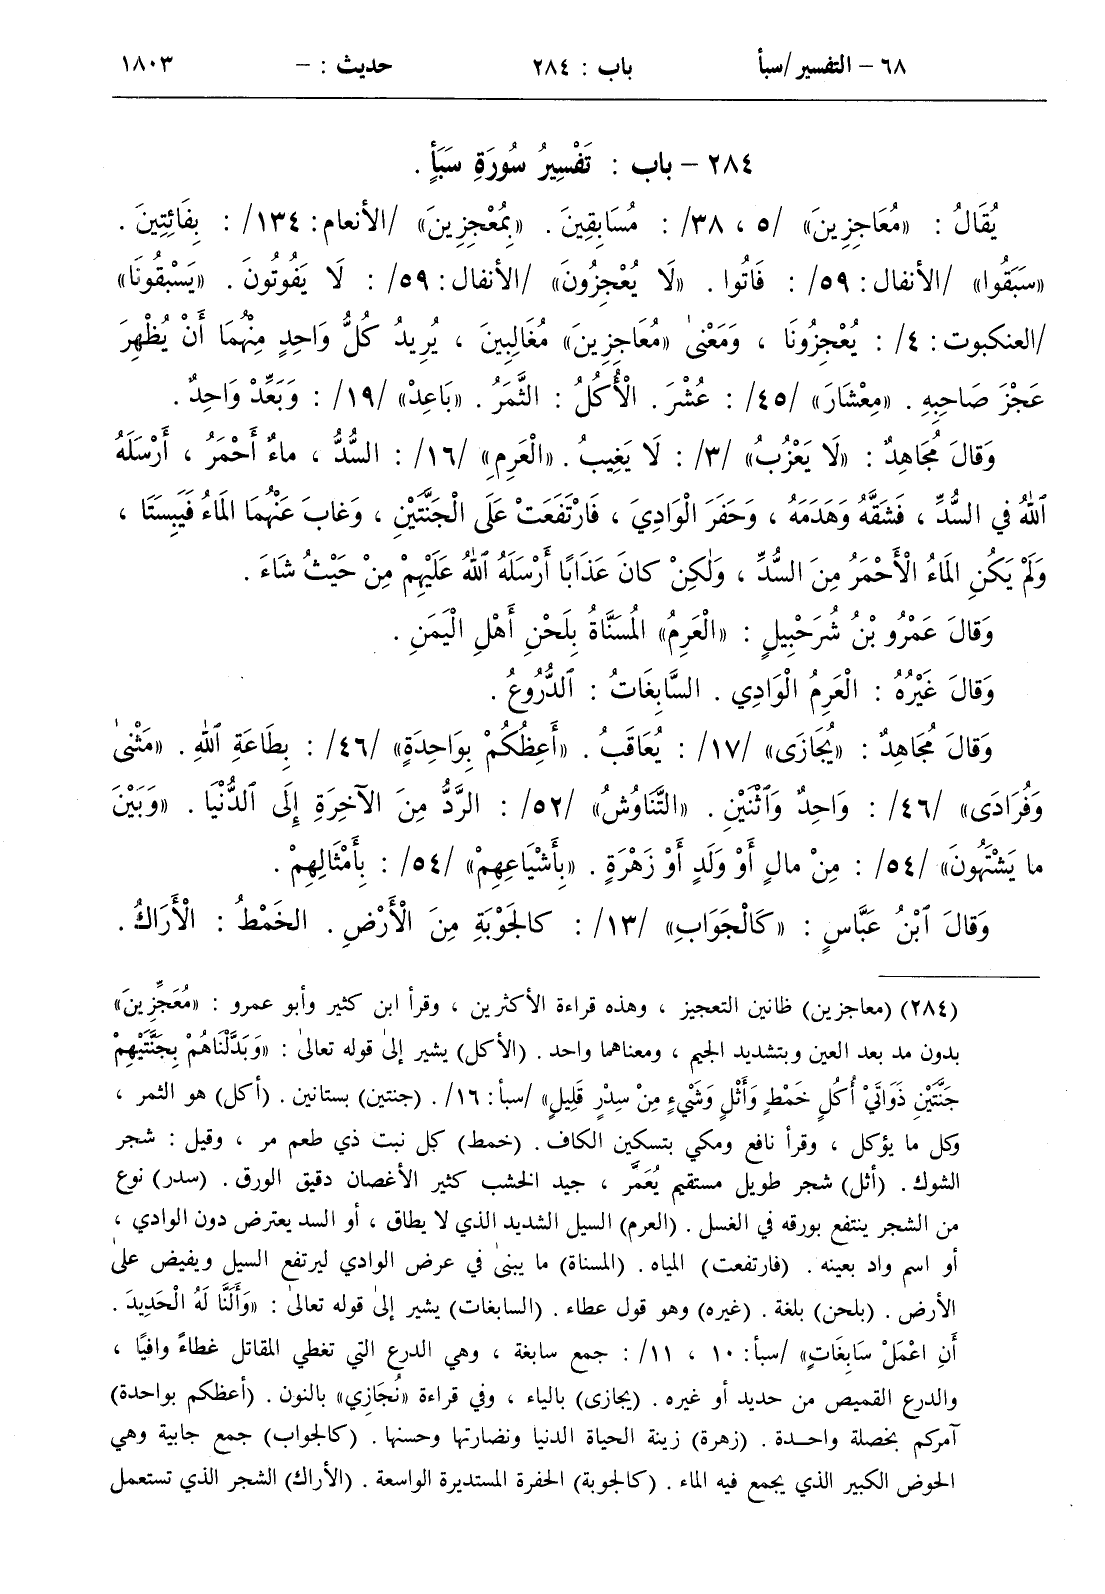 ٦٨ – التفسير/سبأ باب : ٢٨٤ حديث : – ١٨٠٣
٢٨٤ – باب : تَفْسِيرُ سُورَةِ سَبَأٍ .
يُقَالُ : «مُعَاجِزِينَ» /٥ ، ٣٨/ : مُسَابِقِينَ . «بِمُعْجِزِينَ» /الأنعام : ١٣٤/ : بِفَائِتِينَ .
«سَبَقُوا» /الأنفال : ٥٩/ : فَاتُوا . «لَا يُعْجِزُونَ» /الأنفال : ٥٩/ : لَا يَفُوتُونَ . «يَسْبِقُونَا»
/العنكبوت : ٤/ : يُعْجِزُونَا ، وَمَعْنَىٰ «مُعَاجِزِينَ» مُغَالِبِينَ ، يُرِيدُ كُلُّ وَاحِدٍ مِنْهُمَا أَنْ يُظْهِرَ
عَجْزَ صَاحِبِهِ . «مِعْشَارَ» /٤٥/ : عُشْرَ . الْأُكُلُ : الثَّمَرُ . «بَاعِدْ» /١٩/ : وَبَعِّدْ وَاحِدٌ .
وَقالَ مُجَاهِدٌ : «لَا يَعْزُبُ» /٣/ : لَا يَغِيبُ . «الْعَرِمِ» /١٦/ : السُّدُّ ، ماءٌ أَحْمَرُ ، أَرْسَلَهُ
ٱللهُ في السُّدِّ ، فَشَقَّهُ وَهَدَمَهُ ، وَحَفَرَ الْوَادِيَ ، فَارْتَفَعَتْ عَلَى الْجَنَّتَيْنِ ، وَغابَ عَنْهُمَا المَاءُ فَيَبِسَتَا ،
وَلَمْ يَكُنِ المَاءُ الْأَحْمَرُ مِنَ السُّدِّ ، وَلٰكِنْ كانَ عَذَابًا أَرْسَلَهُ ٱللهُ عَلَيْهِمْ مِنْ حَيْثُ شَاءَ .
وَقالَ عَمْرُو بْنُ شُرَحْبِيلٍ : «الْعَرِمُ» المُسَنَّاةُ بِلَحْنِ أَهْلِ الْيَمَنِ .
وَقالَ غَيْرُهُ : الْعَرِمُ الْوَادِي . السَّابِغَاتُ : ٱلدُّرُوعُ .
وَقالَ مُجَاهِدٌ : «يُجَازَى» /١٧/ : يُعَاقَبُ . «أَعِظُكُمْ بِوَاحِدَةٍ» /٤٦/ : بِطَاعَةِ ٱللهِ . «مَثْنَىٰ
وَفُرَادَى» /٤٦/ : وَاحِدٌ وَٱثْنَيْنِ . «التَّنَاوُشُ» /٥٢/ : الرَّدُّ مِنَ الآخِرَةِ إِلَى ٱلدُّنْيَا . «وَبَيْنَ
ما يَشْتَهُونَ» /٥٤/ : مِنْ مالٍ أَوْ وَلَدٍ أَوْ زَهْرَةٍ . «بِأَشْيَاعِهِمْ» /٥٤/ : بِأَمْثَالِهِمْ .
وَقالَ ٱبْنُ عَبَّاسٍ : «كَالْجَوَابِ» /١٣/ : كالجَوْبَةِ مِنَ الْأَرْضِ . الخَمْطُ : الْأَرَاكُ .
(٢٨٤) (معاجزين) ظانين التعجيز ، وهذه قراءة الأكثرين ، وقرأ ابن كثير وأبو عمرو : «مُعَجِّزِينَ»
بدون مد بعد العين وبتشديد الجيم ، ومعناهما واحد . (الأكل) يشير إلىٰ قوله تعالىٰ : «وَبَدَّلْنَاهُمْ بِجَنَّتَيْهِمْ
جَنَّتَيْنِ ذَوَاتَيْ أُكُلٍ خَمْطٍ وَأَثْلٍ وَشَيْءٍ مِنْ سِدْرٍ قَلِيلٍ» /سبأ : ١٦/ . (جنتين) بستانين . (أكل) هو الثمر ،
وكل ما يؤكل ، وقرأ نافع ومكي بتسكين الكاف . (خمط) كل نبت ذي طعم مر ، وقيل : شجر
الشوك . (أثل) شجر طويل مستقيم يُعَمَّر ، جيد الخشب كثير الأغصان دقيق الورق . (سدر) نوع
من الشجر ينتفع بورقه في الغسل . (العرم) السيل الشديد الذي لا يطاق ، أو السد يعترض دون الوادي ،
أو اسم واد بعينه . (فارتفعت) المياه . (المسناة) ما يبنىٰ في عرض الوادي ليرتفع السيل ويفيض علىٰ
الأرض . (بلحن) بلغة . (غيره) وهو قول عطاء . (السابغات) يشير إلىٰ قوله تعالىٰ : «وَأَلَنَّا لَهُ الْحَدِيدَ .
أَنِ اعْمَلْ سَابِغَاتٍ» /سبأ : ١٠ ، ١١/ : جمع سابغة ، وهي الدرع التي تغطي المقاتل غطاءً وافيًا ،
والدرع القميص من حديد أو غيره . (يجازى) بالياء ، وفي قراءة «نُجَازِي» بالنون . (أعظكم بواحدة)
آمركم بخصلة واحـدة . (زهرة) زينة الحياة الدنيا ونضارتها وحسنها . (كالجواب) جمع جابية وهي
الحوض الكبير الذي يجمع فيه الماء . (كالجوبة) الحفرة المستديرة الواسعة . (الأراك) الشجر الذي تستعمل